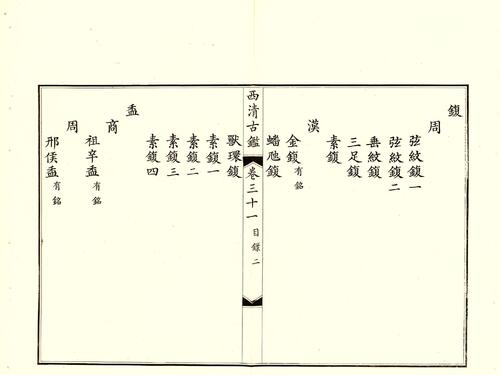 鍑
周
弦紋鍑一
弦紋鍑二
垂紋鍑
三足鍑
素鍑
漢
金鍑有銘
蟠虺鍑
西清古鑑 卷三十一 目錄 二
獸環鍑
素鍑一
素鍑二
素鍑三
素鍑四
盉
商
祖辛盉有銘
周
邢侯盉有銘